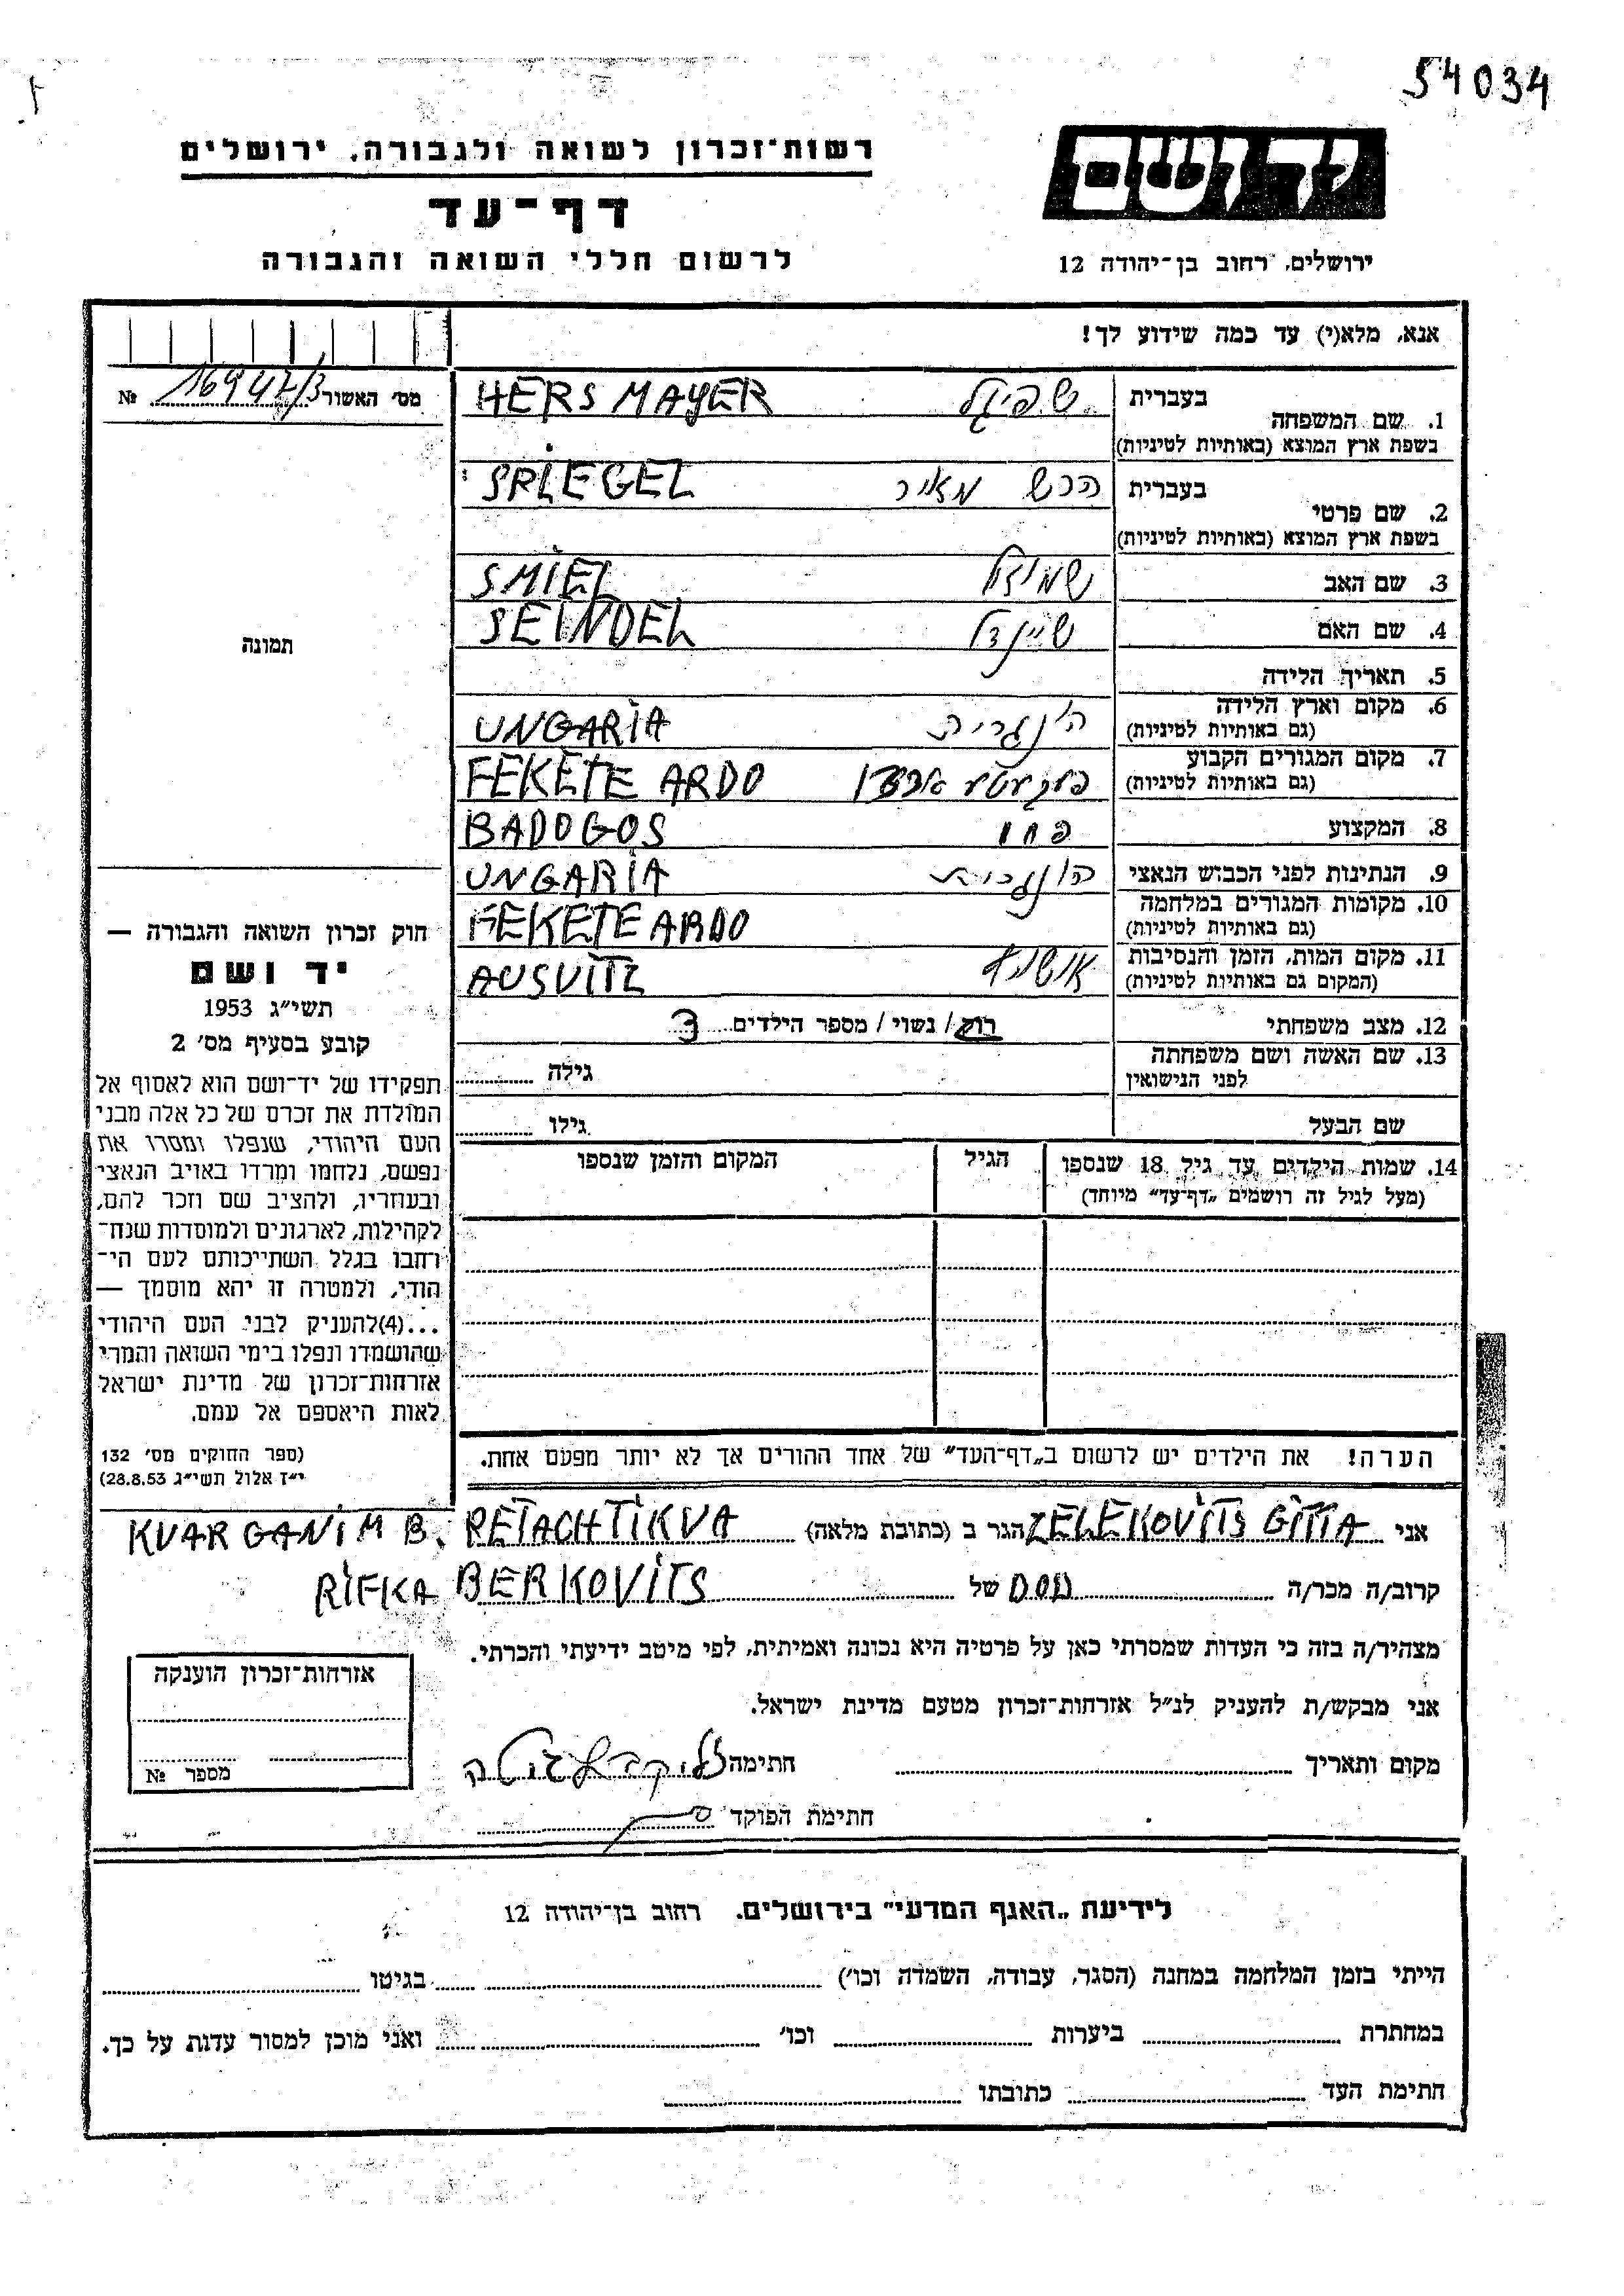 54034
רשות־זכרון לשואה ולגבורה, ירושלים
יד ושם
דף־עד
לרשום חללי השואה והגבורה
ירושלים, רחוב בן־יהודה 12
אנא, מלא(י) עד כמה שידוע לך!
מס׳ האשור 16947/3 №
1. שם המשפחה
בעברית שפיגל HERS MAYER
בשפת ארץ המוצא (באותיות לטיניות)
2. שם פרטי
בעברית הרש מאיר SPIEGEL
בשפת ארץ המוצא (באותיות לטיניות)
3. שם האב SMIEL
4. שם האם שיינדל SEINDEL
תמונה
5. תאריך הלידה
6. מקום וארץ הלידה UNGARIA
(גם באותיות לטיניות)
7. מקום המגורים הקבוע FEKETE ARDO
(גם באותיות לטיניות)
8. המקצוע פחח BADOGOS
9. הנתינות לפני הכבוש הנאצי UNGARIA
10. מקומות המגורים במלחמה FEKETE ARDO
(גם באותיות לטיניות)
11. מקום המות, הזמן והנסיבות AUSVITZ
(המקום גם באותיות לטיניות)
12. מצב משפחתי רווק / נשוי / מספר הילדים 3
13. שם האשה ושם משפחתה גילה
לפני הנישואין
שם הבעל גילו
14. שמות הילדים עד גיל 18 שנספו הגיל המקום והזמן שנספו
(מעל לגיל זה רושמים „דף־עד״ מיוחד)
חוק זכרון השואה והגבורה —
יד ושם
תשי״ג 1953
קובע בסעיף מס׳ 2
תפקידו של יד־ושם הוא לאסוף אל
המולדת את זכרם של כל אלה מבני
העם היהודי, שנפלו ומסרו את
נפשם, נלחמו ומרדו באויב הנאצי
ובעוזריו, ולהציב שם וזכר להם,
לקהילות, לארגונים ולמוסדות שנח־
רבו בגלל השתייכותם לעם הי־
הודי, ולמטרה זו יהא מוסמך —
...(4)להעניק לבני העם היהודי
שהושמדו ונפלו בימי השואה והמרי
אזרחות־זכרון של מדינת ישראל
לאות היאספם אל עמם.
(ספר החוקים מס׳ 132
י״ז אלול תשי״ג 28.8.53)
הערה! את הילדים יש לרשום ב„דף־העד״ של אחד ההורים אך לא יותר מפעם אחת.
אני ZELEKOVITS GITTA הגר ב (כתובת מלאה) PETACH TIKVA KVAR GANIM B.
קרוב/ה מכר/ה DOD של BERKOVITS RIFKA
מצהיר/ה בזה כי העדות שמסרתי כאן על פרטיה היא נכונה ואמיתית, לפי מיטב ידיעתי והכרתי.
אני מבקש/ת להעניק לנ״ל אזרחות־זכרון מטעם מדינת ישראל.
מקום ותאריך חתימה
חתימת הפוקד
אזרחות־זכרון הוענקה
מספר №
לידיעת „האגף המדעי״ בירושלים, רחוב בן־יהודה 12
הייתי בזמן המלחמה במחנה (הסגר, עבודה, השמדה וכו׳) בגיטו
במחתרת ביערות וכו׳ ואני מוכן למסור עדות על כך.
חתימת העד כתובתו